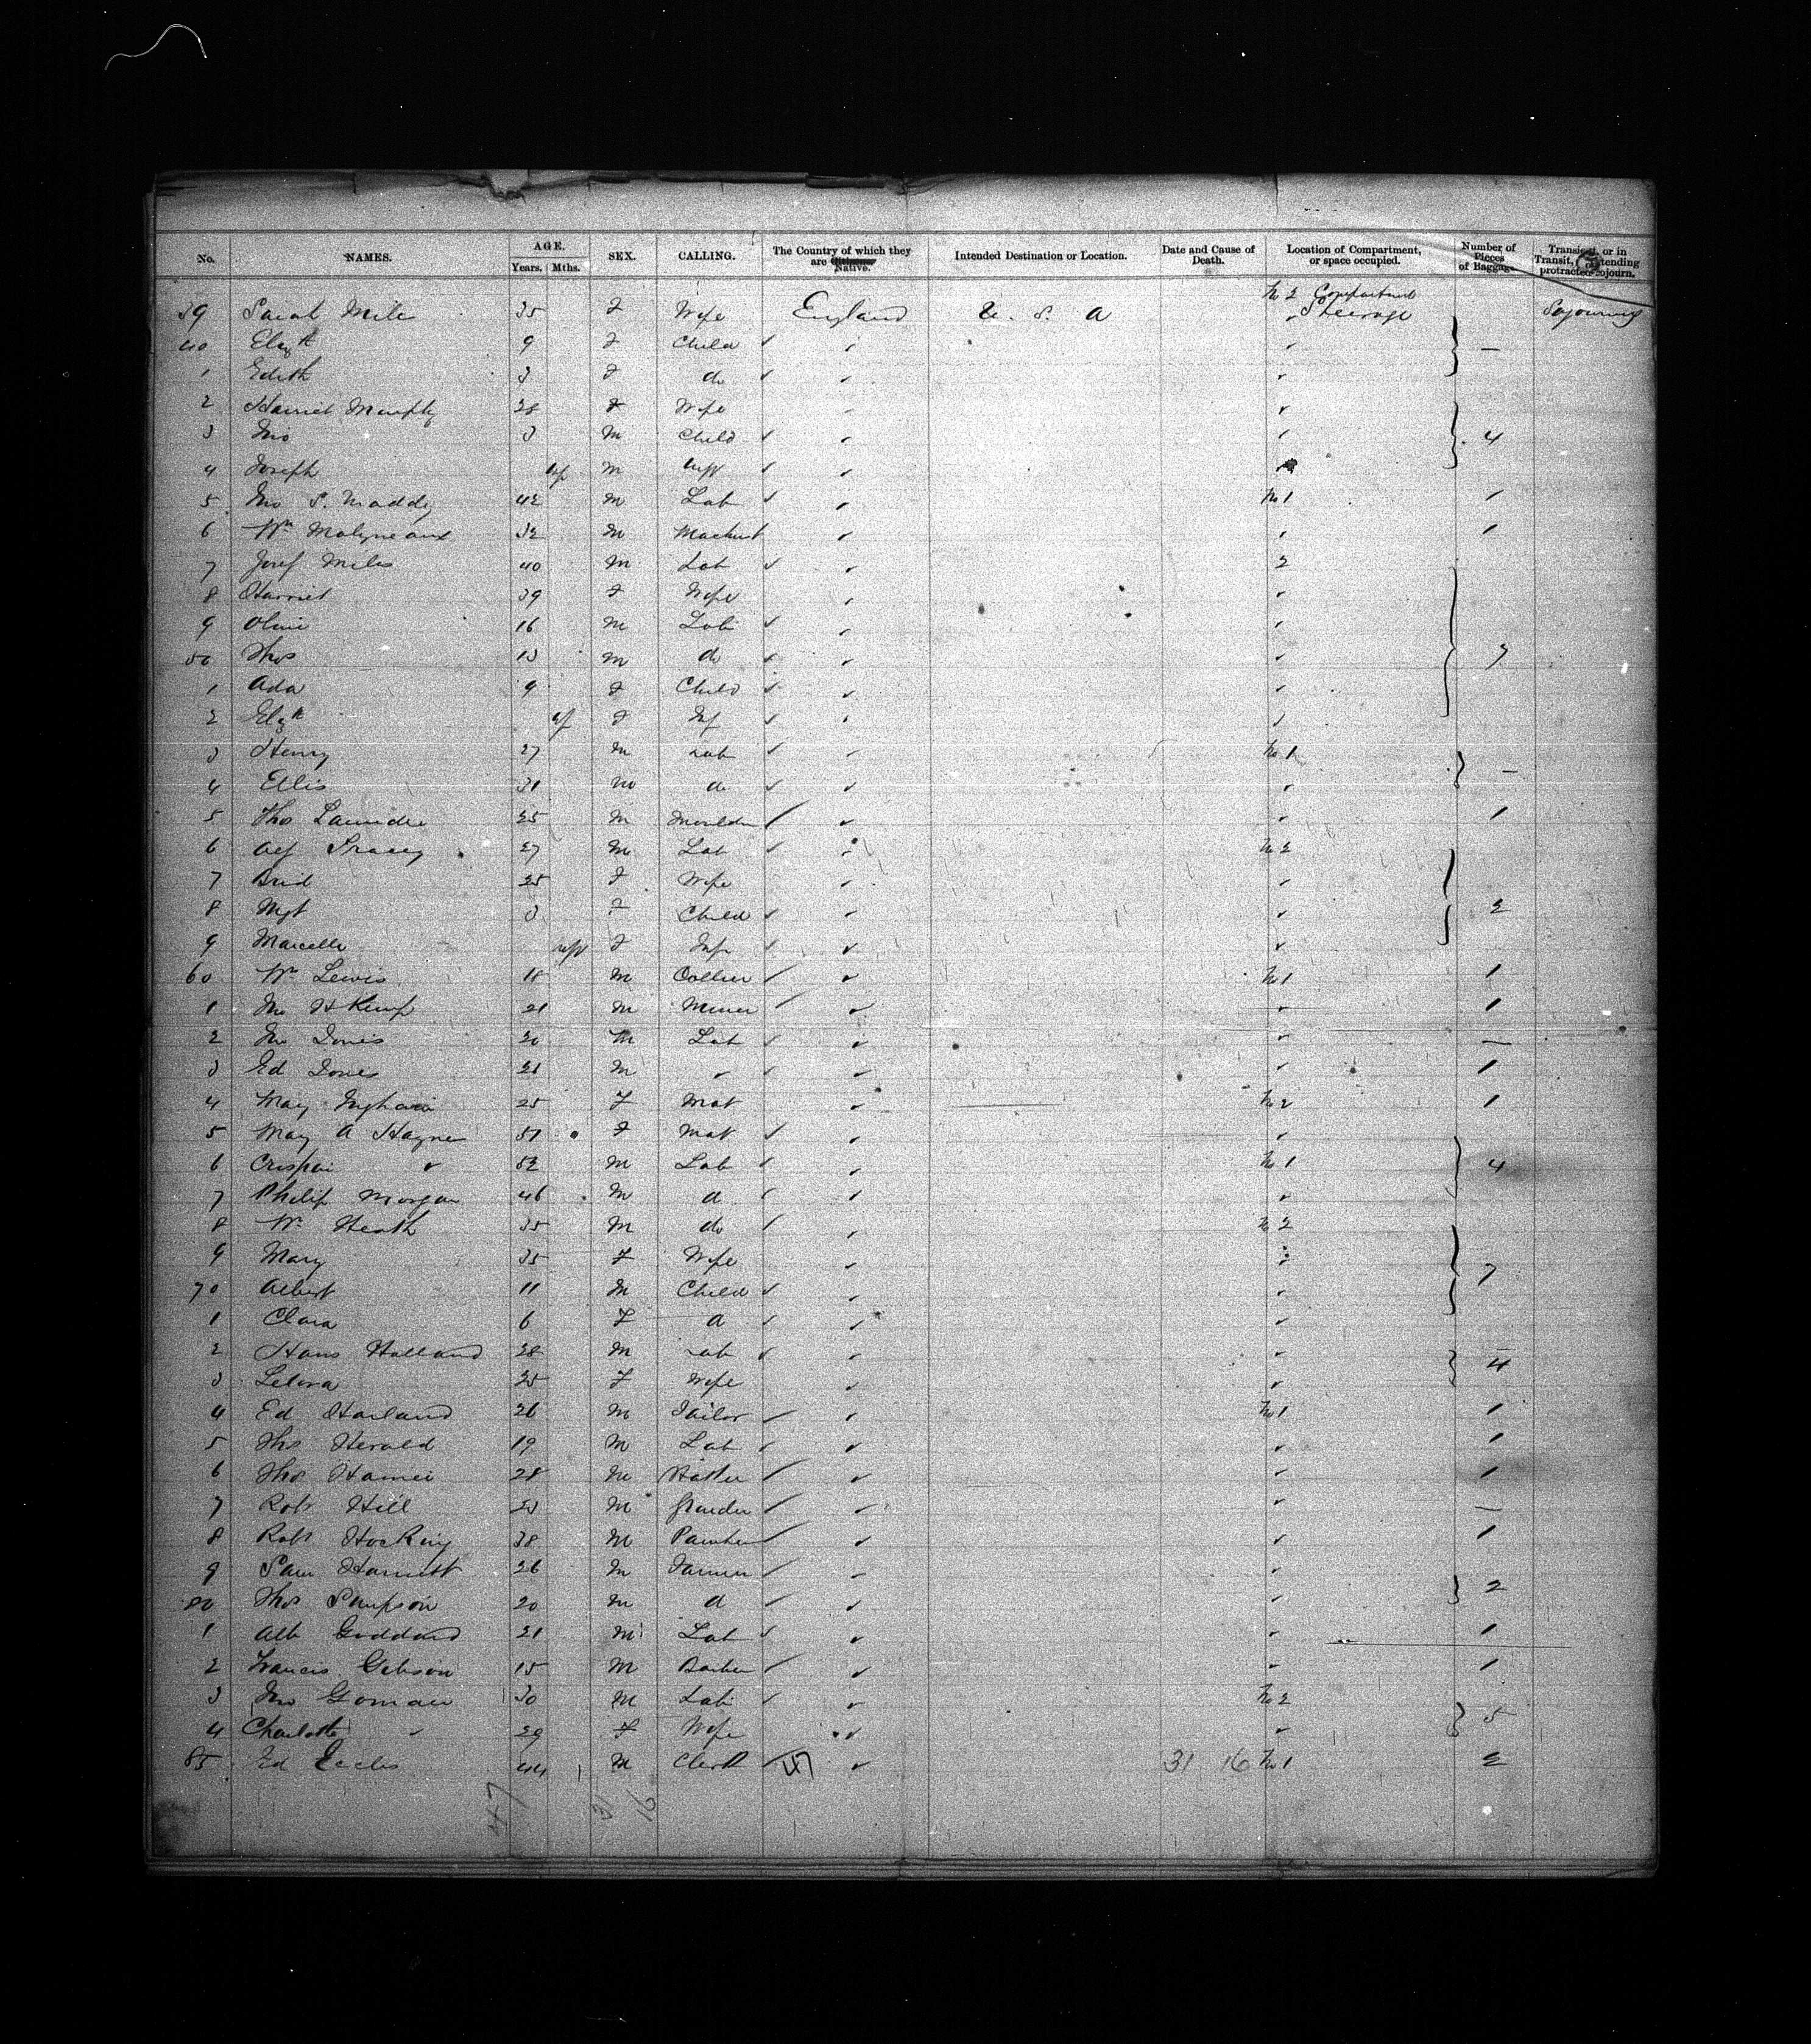 No. NAMES. AGE. Years. Mths. SEX. CALLING. The Country of which they are Native. Intended Destination or Location. Date and Cause of Death. Location of Compartment, or space occupied. Number of Pieces of Baggage Transient, or in Transit, or intending protracted sojourn.
39 Sarah Mile 35 F Wife England U. S. A No 2 Compartment Steerage Sojourning
40 Elizth 9 F Child ✓ —
1 Edith 3 F do ✓
2 Harriet Murphy 28 F Wife
3 Jno 3 M Child ✓ 4
4 Joseph M ✓
5 Jno S. Maddy 42 M Lab ✓ No 1 1
6 Wm Molyneaux 32 M Machist 1
7 Josef Miles 40 M Lab ✓ 2
8 Harriet 39 F Wife
9 16 M Lab ✓
50 Thos 13 M do ✓ 7
1 Ada 9 F Child ✓
2 Elzth F Inf ✓
3 Henry 27 M Lab ✓ No 1
4 Ellis 31 M do ✓ —
5 Thos 25 M Moulder 1
6 Alf Tracey 27 M Lab ✓ No 2
7 Brid 25 F Wife
8 Mgt 3 F Child ✓ 2
9 Marcella F Inf ✓
60 Wm Lewis 18 M Collier No 1 1
1 Jno H Kemp 21 M Miner 1
2 Jno Jones 20 M Lab ✓ —
3 Ed Jones 21 M ✓ 1
4 May Ingham 25 F Mat No 2 1
5 May A Hayne 51 F Mat ✓
6 Crispin 52 M Lab ✓ No 1 4
7 Philip Morgan 46 M do
8 Wm Heath 35 M do No 2
9 Mary 35 F Wife 7
70 Albert 11 M Child ✓
1 Clara 6 F do ✓
2 Hans Holland 28 M Lab ✓ 4
3 Lelora 25 F Wife
4 Ed Harland 26 M Tailor No 1 1
5 Thos Herald 19 M Lab ✓ 1
6 Thos 28 M 1
7 Robt Hill 23 M —
8 Robt Hocking 38 M Painter 1
9 Sam 26 M Farmer
80 Thos Simpson 20 M do 2
1 Alb Goddard 21 M Lab ✓ 1
2 Francis Gibson 15 M Barber 1
3 Jno Gorman 30 M Lab ✓ No 2
4 Charlotte 29 F Wife 5
85 Ed Eccles 44 M Clerk 47 31 16 No 1 2
47 31 16